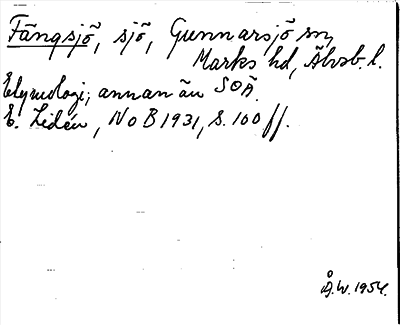 Fängsjö, sjö, Gunnarsjö sn,
Marks hd, Älvsb. l.
Etymologi; annan än SOÄ.
E. Lidén, NoB 1931, s. 100 ff.
Å.W. 1954.